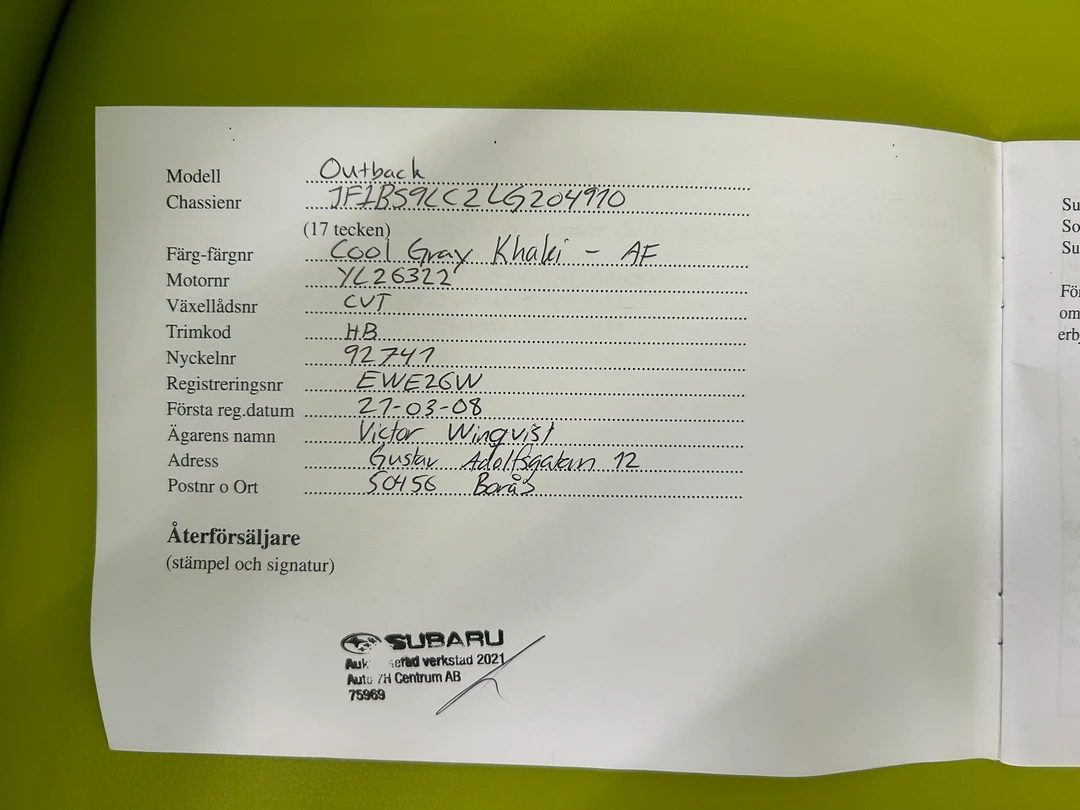 Modell Outback
Chassienr JF1BS9LC2LG204910
(17 tecken)
Färg-färgnr Cool Gray Khaki - AF
Motornr YL26322
Växellådsnr CVT
Trimkod HB
Nyckelnr 92741
Registreringsnr EWE26W
Första reg.datum 21-03-08
Ägarens namn Victor Winqvist
Adress Gustav Adolfsgatan 12
Postnr o Ort 50456 Borås
Återförsäljare
(stämpel och signatur)
SUBARU
verkstad 2021
Centrum AB
75969
Su
So
Su
För
om
erb